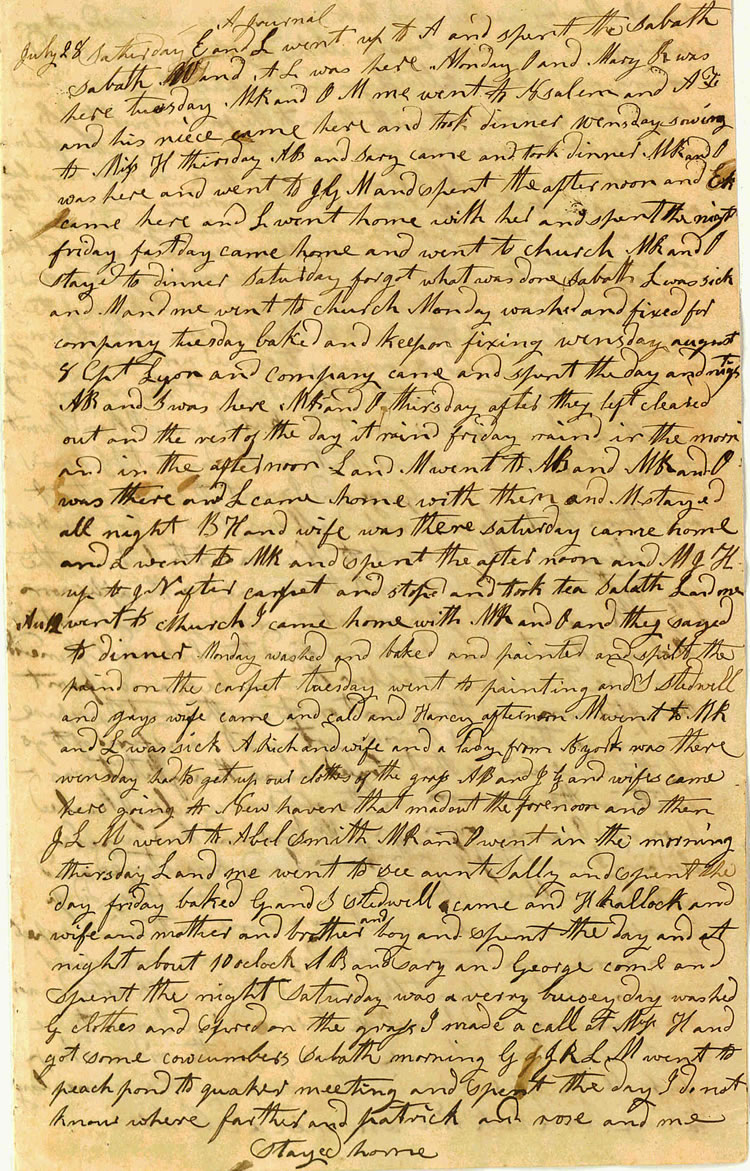 A Journal
July 28 Saturday E and L went up to A and spent the Sabath
Sabath W and A L was here Monday P and Mary R was
here tuesday MR and P M me went to N salem and A F
and his niece came here and took dinner wensday sowing
to Miss H thirsday AB and Sary came and took dinner MR and P
was here and went to J G M and spent the afternoon and E R
came here and L went home with her and spent the night
friday fast day came home and went to church MR and P
stayed to dinner Saturday forgot what was done Sabath L was sick
and M and me went to church Monday washed and fixed for
company tuesday baked and keep on fixing wensday august
8 Cpt Lyon and company came and spent the day and night
AB and S was here MR and P thirsday after they left cleared
out and the rest of the day it raind friday raind in the morn
and in the afternoon L and M went to AB and MR and P
was there and L came home with them and M stayed
all night B H and wife was there Saturday came home
and L went to MR and spent the afternoon and M J H
up to J N after carpet and stoped and took tea Sabath L and me
Au 12 went to church I came home with MR and P and they stayed
to dinner Monday washed and baked and painted and spilt the
paind on the carpet tuesday went to painting and S stedwell
and grays wife came and cald and Hancy afternoon M went to MR
and L was sick A Rich and wife and a lady from N york was there
wensday had to get up our clothes of the grass AB and J G and wifes came
here going to New haven that mad out the forenoon and then
J L M went to Abel Smith MR and P went in the morning
thirsday L and me went to see aunt Sally and spent the
day friday baked G and S Stedwell came and H hallock and
wife and mother and brother and boy and spent the day and at
night about 10 oclock AB and Sary and George come and
spent the night Saturday was a verry buisey day washed
G clothes and spred on the grass I made a call at Mrs H and
got some cowcumbers Sabath morning G J R L M went to
peach pond to quaker meeting and spent the day I do not
know where farther and patrick and rose and me
stayed home